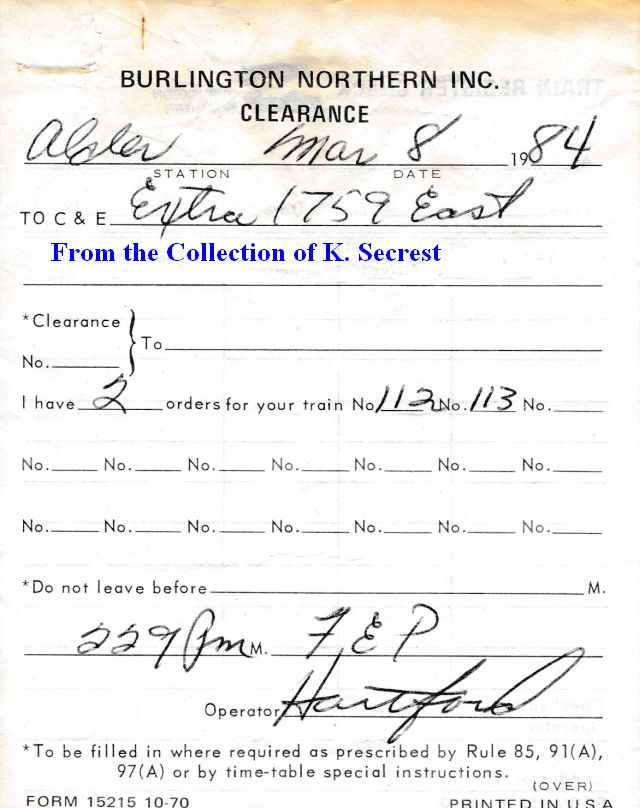 BURLINGTON NORTHERN INC.
CLEARANCE
Alder Mar 8 1984
STATION DATE
TO C & E Extra 1759 East
From the Collection of K. Secrest
*Clearance
No. To
I have 2 orders for your train No. 112 No. 113 No.
No. No. No. No. No. No. No.
No. No. No. No. No. No. No.
*Do not leave before M.
229 Pm M. F E P
Operator Hartford
*To be filled in where required as prescribed by Rule 85, 91(A),
97(A) or by time-table special instructions.
(OVER)
FORM 15215 10-70 PRINTED IN U.S.A.